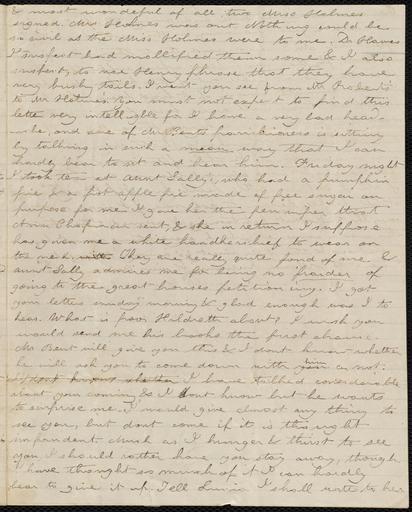 & most wonderful of all two Miss Holmes
signed. Mrs Holmes was out. Nothing could be
so civil as the Miss Holmes were to me. Dr Haves
I suspect had mollified them some & I also
suspect, to use Henry phrase that they have
very bushy tails. I went you see from Mr Roberts'
to Mr Holmes. You must not expect to find this
letter very intelligible for I have a very bad head-
ache, and one of Mr Bents parishioners is sitting
by talking in such a mean way that I can
hardly bear to sit and hear him. Friday night
I took tea at Aunt Sally's, who had a pumpkin
pie & a hot apple pie made of free sugar on
purpose for me. I gave her the pen wiper that
Ann Chapman sent, & she in return I suppose
has given me a white handkerchief to wear on
the neck. They are really quite fond of me &
aunt Sally admires me for being no fraider of
going to the great houses petitioning. I got
your letter sunday morning & glad enough was I to
hear. What is poor Hildreth about? I wish you
would send me his books the first chance.
Mr Bent will give you this & I dont know whether
he will ask you to come down with him or not.
I have talked considerable
about your coming & I dont know but he wants
to surprise me. I would give almost any thing to
see you, but dont come if it is this night
as I hunger & thirst to see
you I should rather have you stay away, though
I have thought so much of it I can hardly
bear to give it up. Tell Lucia I shall write to her